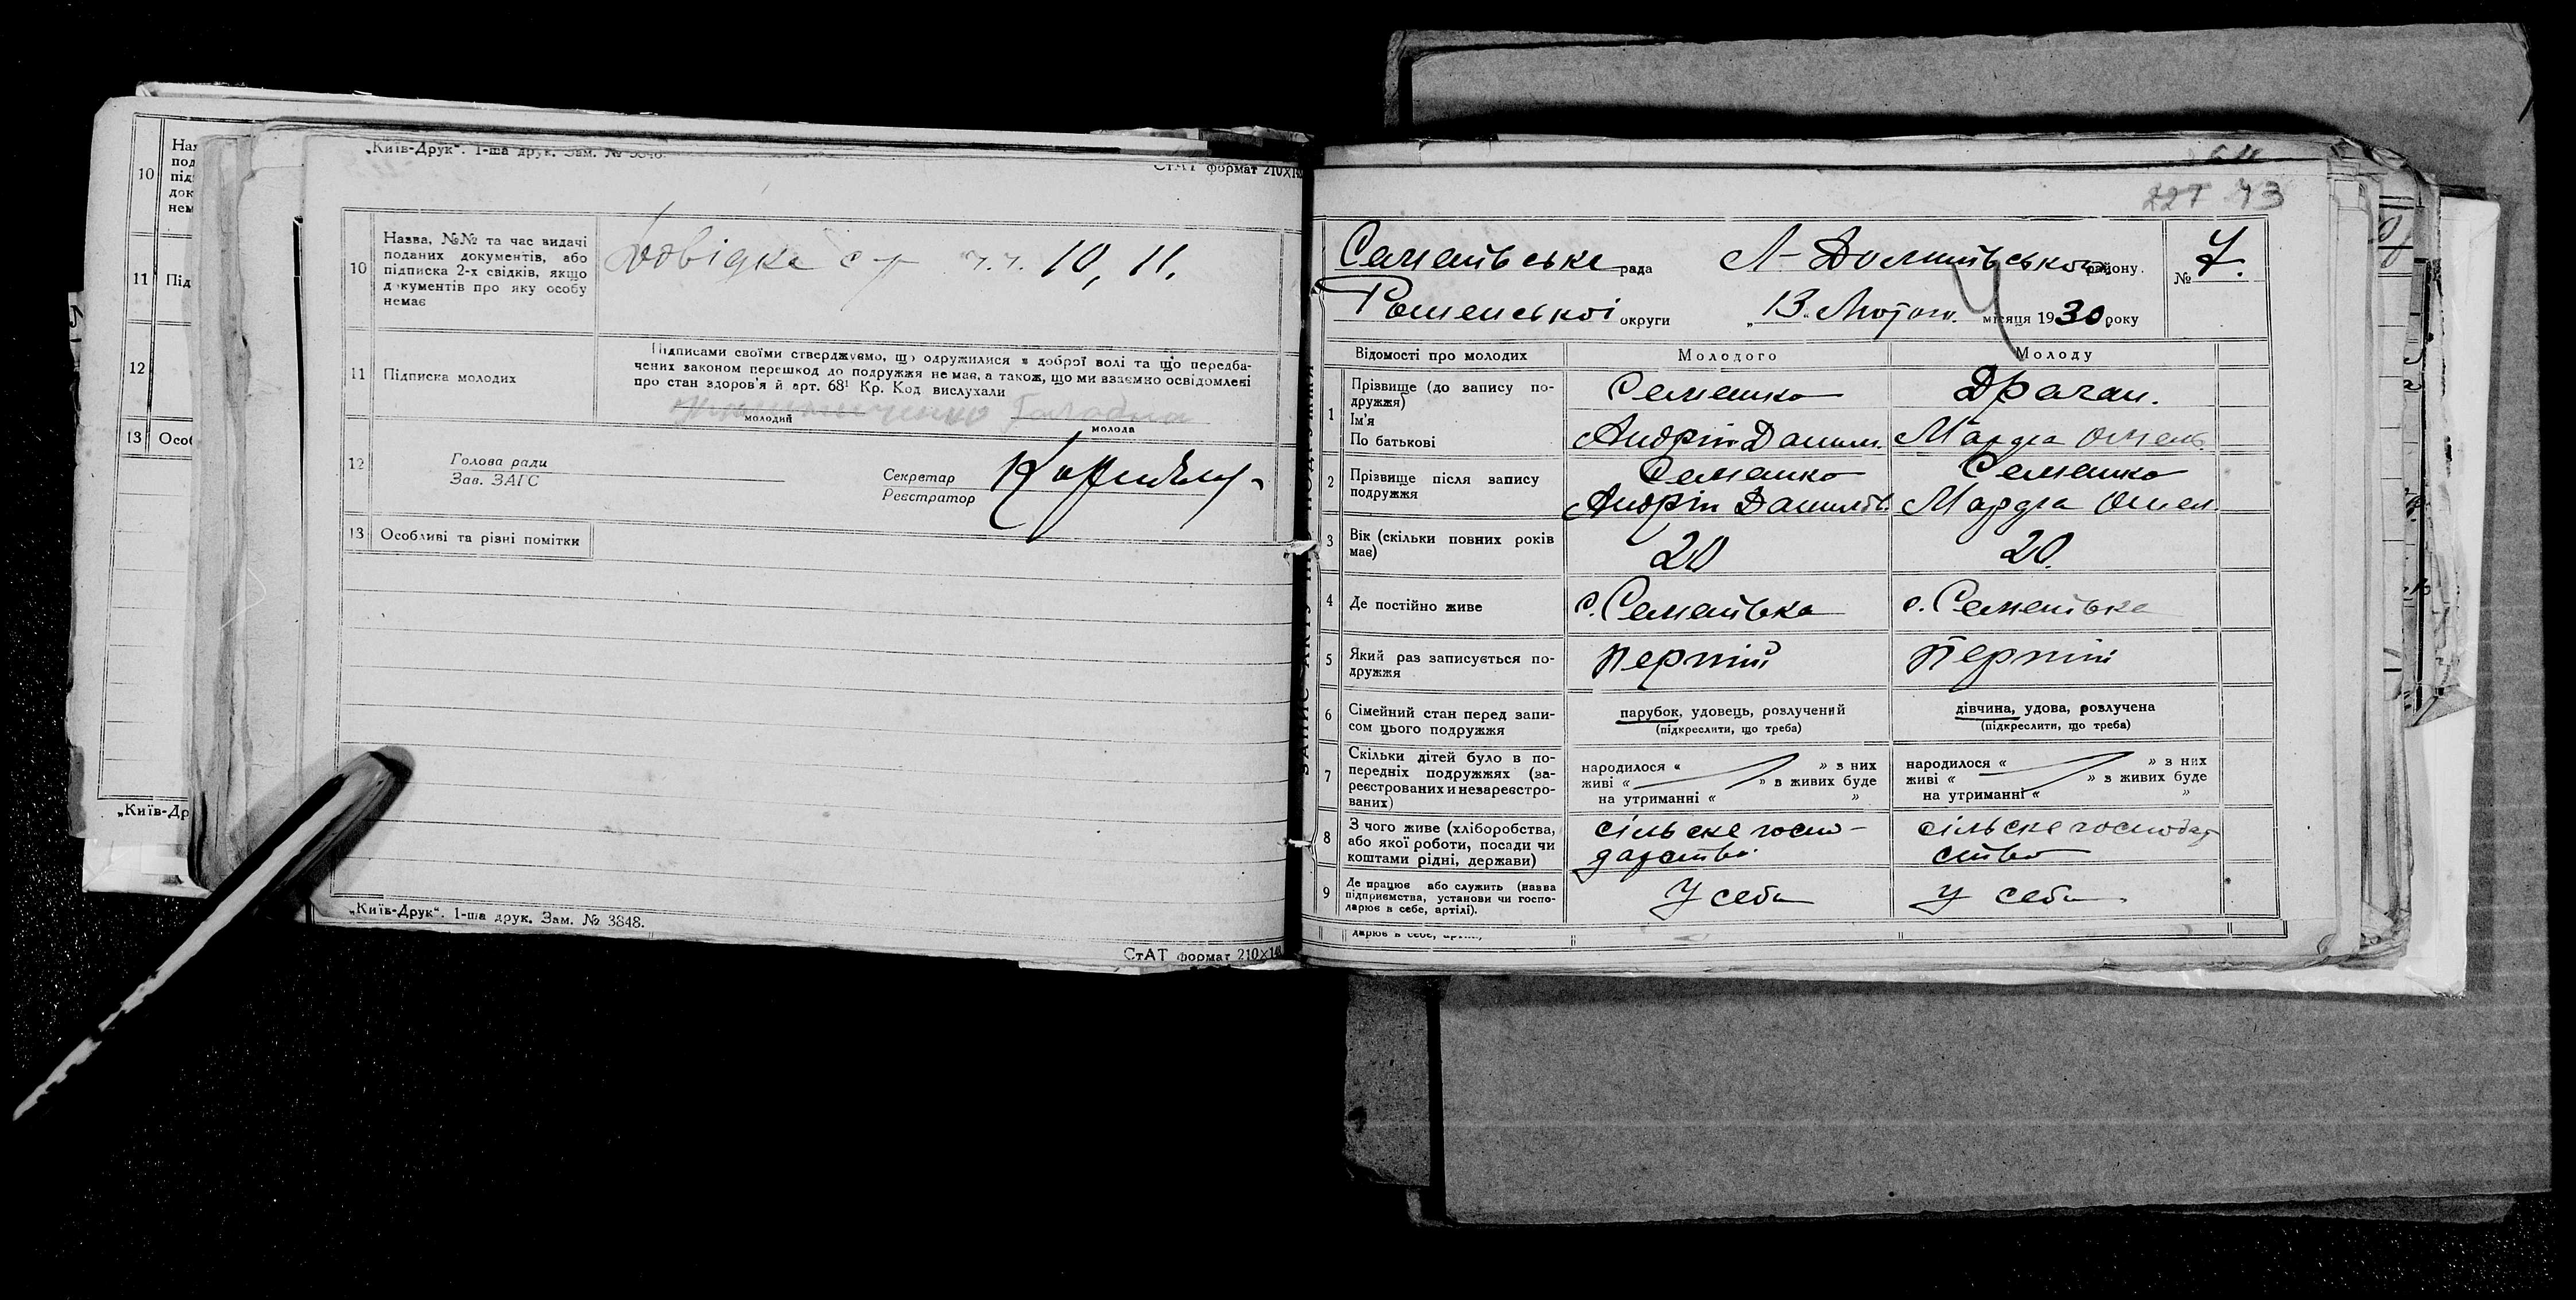 10
11 Під
12
13 Особ
„Київ-Др
„Київ-Друк“. 1-ша друк. Зам. № 3848.
СтАТ формат 210×1
10 Назва, №№ та час видачі
поданих документів, або
підписка 2-х свідків, якщо
документів про яку особу
немає
Довідка с-р ч.ч. 10, 11.
11 Підписка молодих
Підписами своїми стверджуємо, що одружилися з доброї волі та що передба-
чених законом перешкод до подружжя немає, а також, що ми взаємно освідомлені
про стан здоров'я й арт. 68¹ Кр. Код вислухали
молодий молода
12 Голова ради
Зав. ЗАГС
Секретар
Реєстратор
13 Особливі та різні помітки
„Київ-Друк“. 1-ша друк. Зам. № 3848.
СтАТ формат 210×1
227 43
Семенівське рада району. № 7.
Роменської округи „13“ Лютого місяця 1930 року
Відомості про молодих Молодого Молоду
1 Прізвище (до запису по-
дружжя)
Ім'я
По батькові
Семенко Драган.
Андрій Данил. Марфа Омель.
2 Прізвище після запису
подружжя
Семенко Семенко
Андрій Данилов. Марфа Омел.
3 Вік (скільки повних років
має)
20 20.
4 Де постійно живе с. Семенівка с. Семенівка
5 Який раз записується по-
дружжя
Перший Перший
6 Сімейний стан перед запи-
сом цього подружжя
парубок, удовець, розлучений
(підкреслити, що треба)
дівчина, удова, розлучена
(підкреслити, що треба)
7 Скільки дітей було в по-
передніх подружжях (за-
реєстрованих и незареєстро-
ваних)
народилося “ ” з них
живі “ ” з живих буде
на утриманні “ ”
народилося “ ” з них
живі “ ” з живих буде
на утриманні “ ”
8 З чого живе (хліборобства,
або якої роботи, посади чи
коштами рідні, держави)
сільське госпо-
дарство
сільске господар
ство
9 Де працює або служить (назва
підприємства, установи чи госпо-
дарює в себе, артілі).
У себе У себе